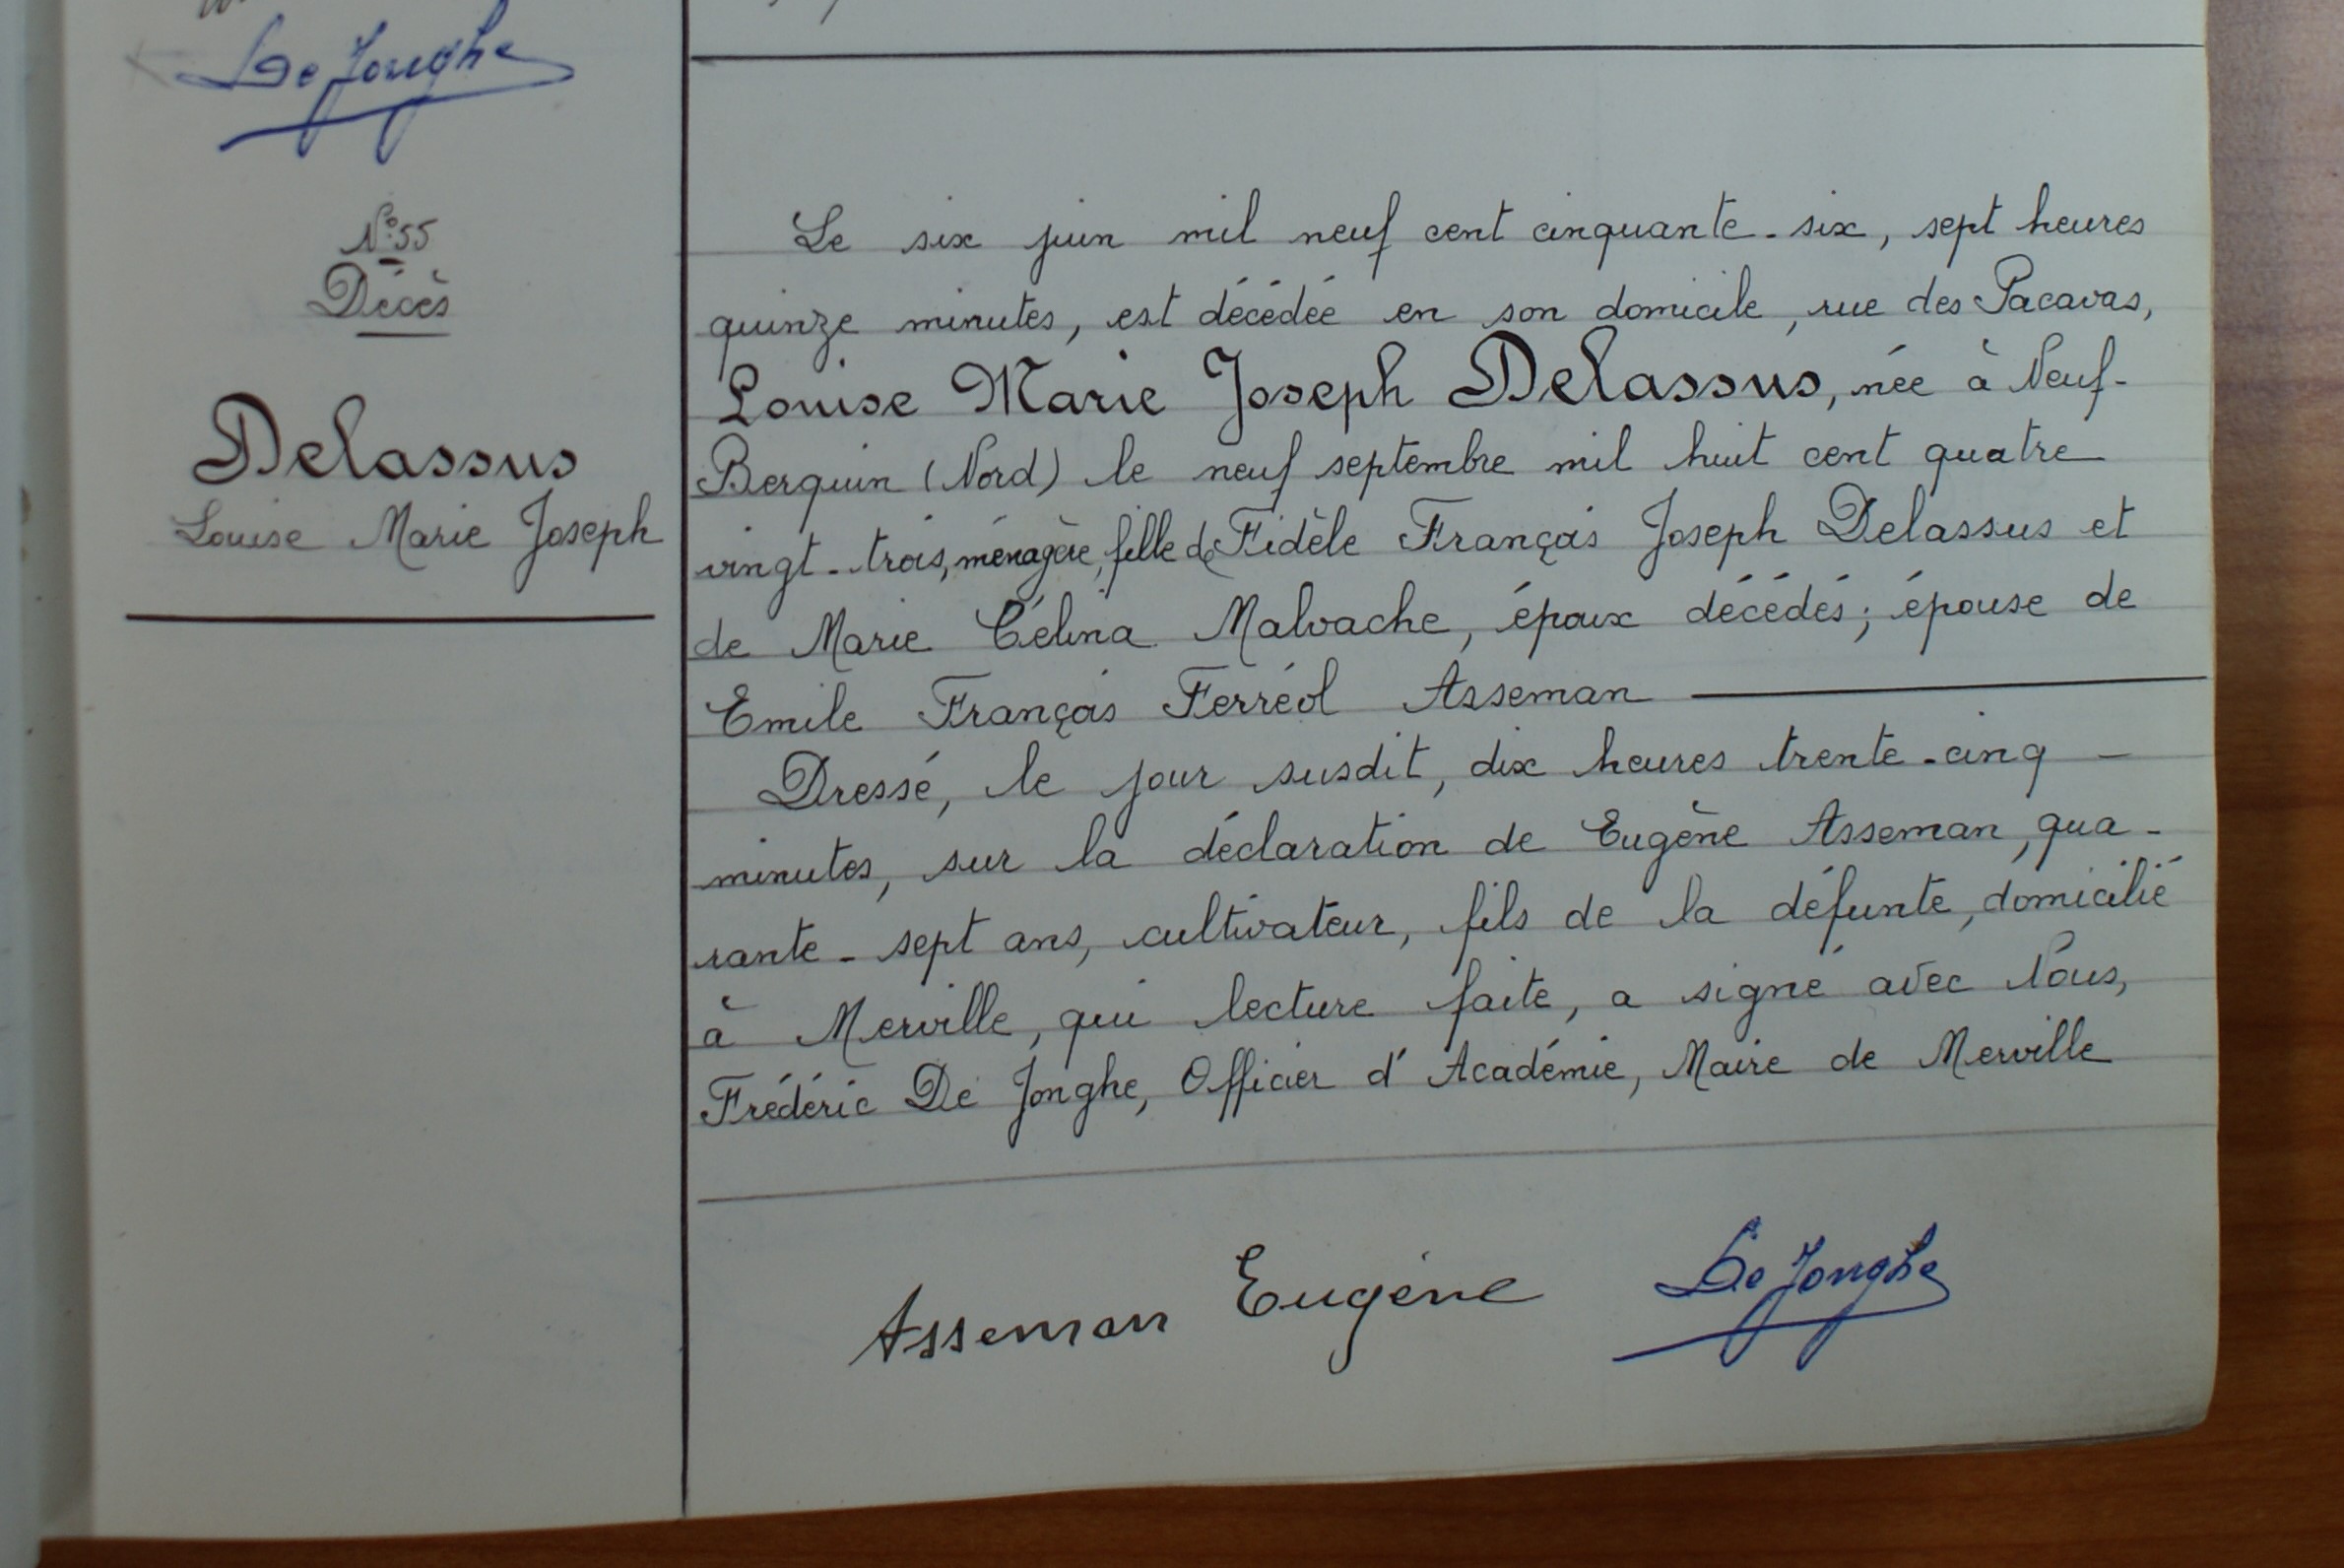 De Jonghe
N° 55
Décès
Delassus
Louise Marie Joseph
Le six juin mil neuf cent cinquante-six, sept heures
quinze minutes, est décédée en son domicile, rue des Pacavas,
Louise Marie Joseph Delassus, née à Neuf-
Berquin (Nord) le neuf septembre mil huit cent quatre
vingt-trois, ménagère, fille de Fidèle François Joseph Delassus et
de Marie Célina Malvache, époux décédés; épouse de
Emile François Ferréol Asseman
Dressé, le jour susdit, dix heures trente-cinq -
minutes, sur la déclaration de Eugène Asseman, qua-
rante-sept ans, cultivateur, fils de la défunte, domicilié
à Merville, qui lecture faite, a signé avec Nous,
Frédéric De Jonghe, Officier d'Académie, Maire de Merville
Asseman Eugène De Jonghe